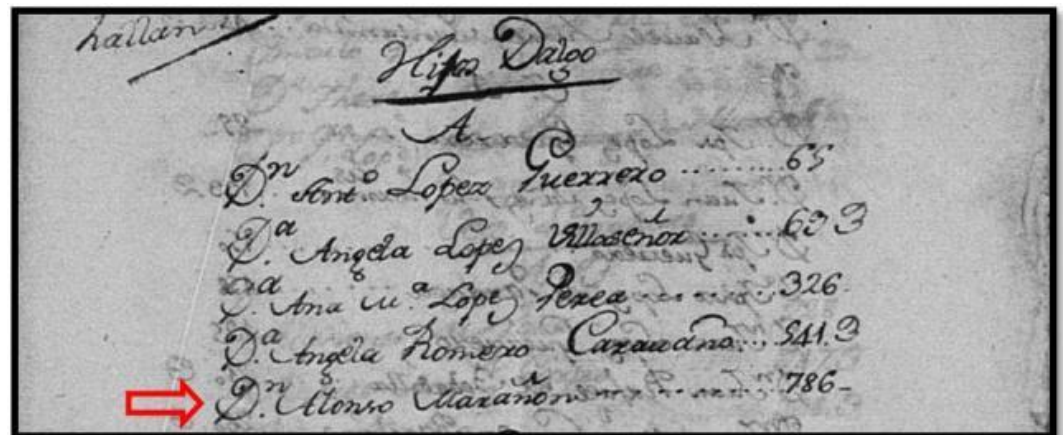 hallan
Hijos Dalgo
A.
Dn. Antº Lopez Guerrero ......... 65
Da. Angela Lopez Villaseñor ...... 693
Da. Ana Mª Lopez Perea ...... 326.
Da. Angela Romero Caravaño ... 541.3
Dn. Alonso Marañon ...... 786-